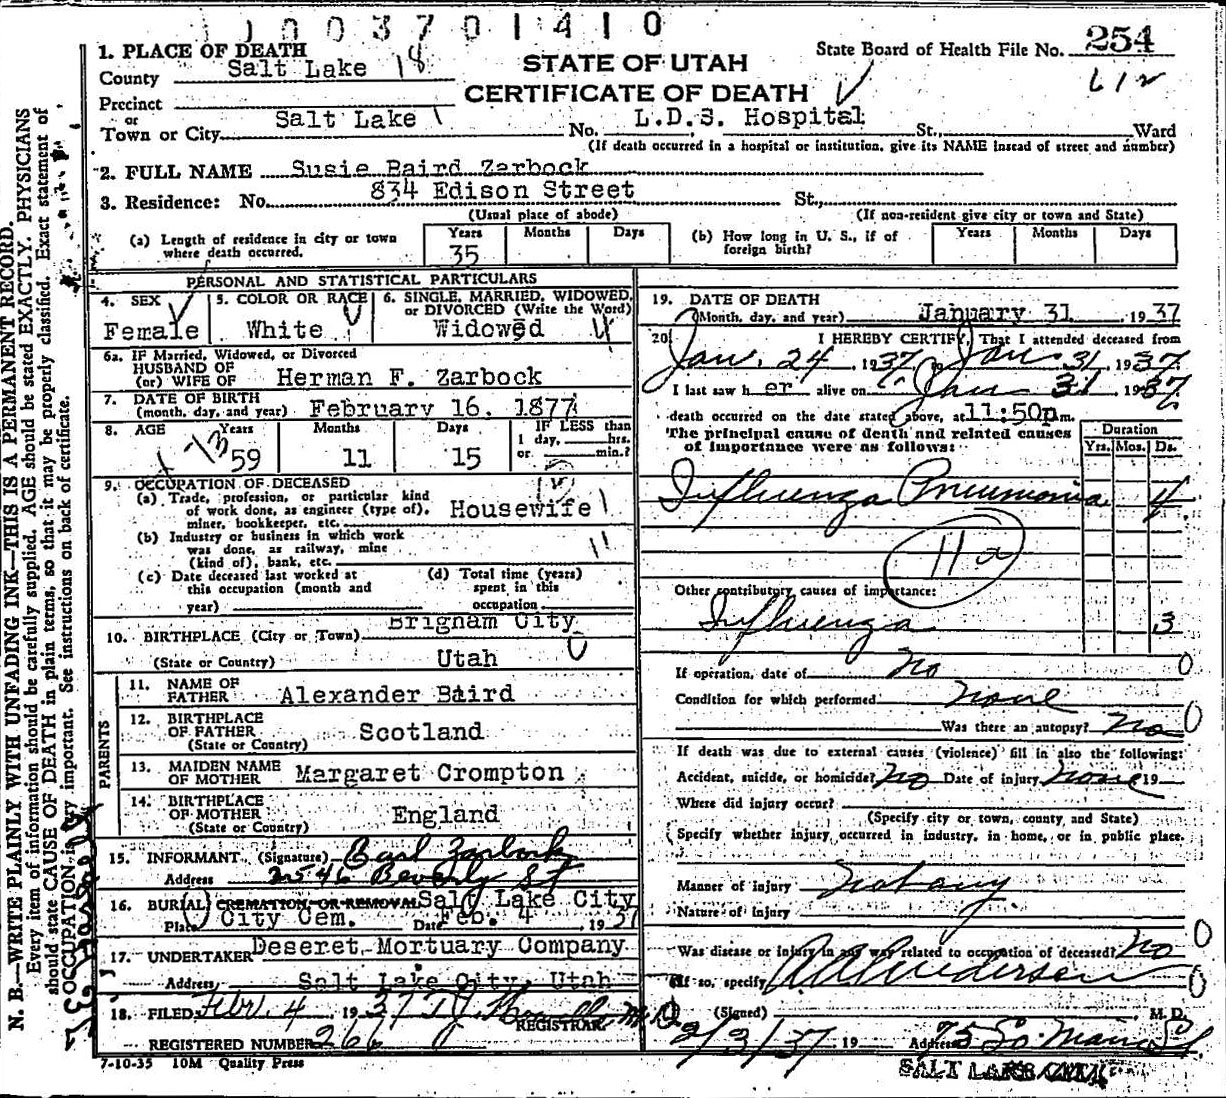 1003701410
1. PLACE OF DEATH
County Salt Lake 18
Precinct
or
Town or City Salt Lake
STATE OF UTAH
CERTIFICATE OF DEATH
State Board of Health File No. 254
612
No. L.D.S. Hospital St., Ward
(If death occurred in a hospital or institution, give its NAME instead of street and number)
2. FULL NAME Susie Baird Zarbock
3. Residence: No. 834 Edison Street St.,
(Usual place of abode) (If non-resident give city or town and State)
(a) Length of residence in city or town where death occurred. Years 35 Months Days
(b) How long in U. S., if of foreign birth? Years Months Days
PERSONAL AND STATISTICAL PARTICULARS
4. SEX Female
5. COLOR OR RACE White
6. SINGLE, MARRIED, WIDOWED, or DIVORCED (Write the Word) Widowed
6a. IF Married, Widowed, or Divorced
HUSBAND OF
(or) WIFE OF Herman F. Zarbock
7. DATE OF BIRTH
(month, day, and year) February 16, 1877
8. AGE Years 59 Months 11 Days 15
IF LESS than
1 day, hrs.
or min.?
9. OCCUPATION OF DECEASED
(a) Trade, profession, or particular kind
of work done, as engineer (type of),
miner, bookkeeper, etc. Housewife
(b) Industry or business in which work
was done, as railway, mine
(kind of), bank, etc.
(c) Date deceased last worked at
this occupation (month and
year)
(d) Total time (years)
spent in this
occupation
10. BIRTHPLACE (City or Town) Brigham City
(State or Country) Utah
PARENTS
11. NAME OF FATHER Alexander Baird
12. BIRTHPLACE OF FATHER (State or Country) Scotland
13. MAIDEN NAME OF MOTHER Margaret Crompton
14. BIRTHPLACE OF MOTHER (State or Country) England
15. INFORMANT (Signature) Earl Zarbock
Address 2546 Beverly St
16. BURIAL, CREMATION, OR REMOVAL Salt Lake City
Place City Cem. Date Feb. 4 1937
17. UNDERTAKER Deseret Mortuary Company
Address Salt Lake City, Utah
18. FILED Feb. 4 1937
REGISTRAR
REGISTERED NUMBER 266
7-10-35 10M Quality Press
19. DATE OF DEATH
(Month, day, and year) January 31 1937
20. I HEREBY CERTIFY, That I attended deceased from
Jan. 24, 1937 to Jan 31, 1937.
I last saw h er alive on Jan 31 1937
death occurred on the date stated above, at 11:50p m.
The principal cause of death and related causes
of importance were as follows:
Duration
Yrs. Mos. Ds.
Influenza Pneumonia 4
11a
Other contributory causes of importance:
Influenza 3
If operation, date of no
Condition for which performed none
Was there an autopsy? no
If death was due to external causes (violence) fill in also the following:
Accident, suicide, or homicide? no Date of injury none 19
Where did injury occur?
(Specify city or town, county, and State)
Specify whether injury occurred in industry, in home, or in public place.
Manner of injury not any
Nature of injury
Was disease or injury in any way related to occupation of deceased? no
If so, specify
(Signed) Anderson M. D.
2/3/37 19 Address 75 So. Main St.
SALT LAKE CITY
N. B.—WRITE PLAINLY WITH UNFADING INK—THIS IS A PERMANENT RECORD.
Every item of information should be carefully supplied. AGE should be stated EXACTLY. PHYSICIANS
should state CAUSE OF DEATH in plain terms, so that it may be properly classified. Exact statement of
OCCUPATION is very important. See instructions on back of certificate.